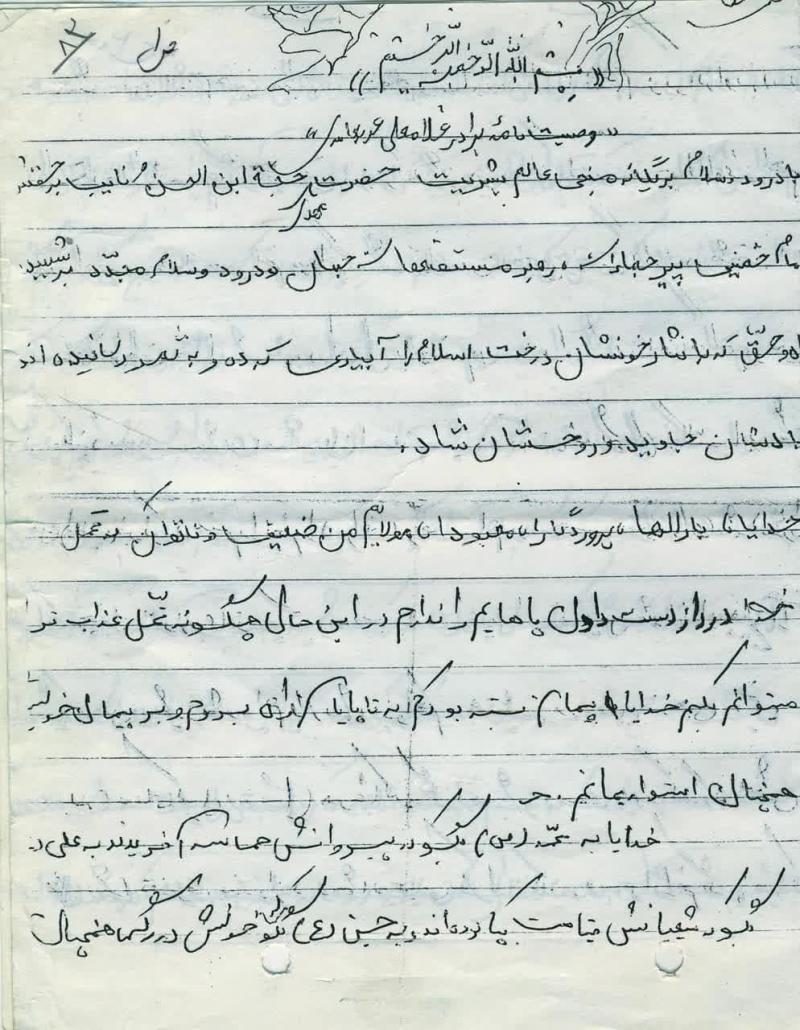 «بسم الله الرحمن الرحیم»
«وصیت نامه برادر غلامعلی
با درود و سلام بر یگانه منجی عالم بشریت حضرت حجة ابن الحسن و نایب بر حقش
مهدی
امام خمینی پیر جماران، رهبر مستضعفان جهان، و درود و سلام مجدد بر شهیدان
راه حق که با نثار خونشان درخت اسلام را آبیاری کرده و به ثمر رسانیده اند
یادشان جاوید و روحشان شاد.
خدایا، بارالها، پروردگارا، معبودا، مولایم من ضعیف و ناتوان
درد از دست دادن پاهایم را ندارم در این حال چگونه تحمل عذاب ترا
میتوانم بکنم خدایا پیمان بسته بودم که تا پایان راه بروم و بر پیمان خویش
همچنان استوار بمانم.
خدایا به محمد (ص) بگو که پیروانش حماسه آفریدند به علی
بگو که شیعیانش قیامت بپا کرده‌اند و به حسین (ع) بگو خونش در رگها همچنان